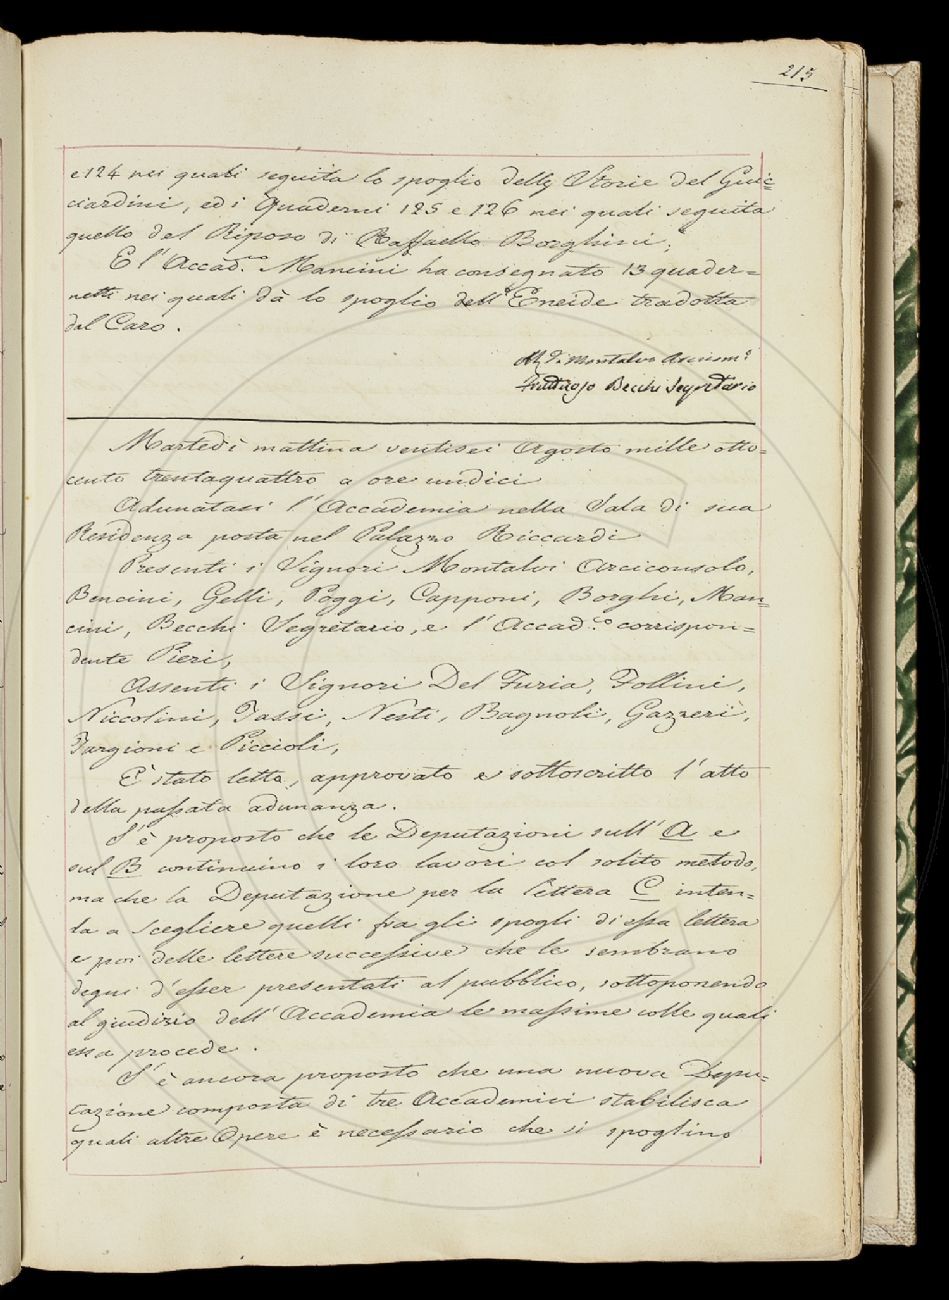 215
e 124 nei quali seguita lo spoglio delle Storie del Guic=
ciardini, ed i Quaderni 125 e 126 nei quali seguita
quello del Riposo di Raffaello Borghini;
E l'Accad.co Mancini ha consegnato 13 quader=
netti nei quali dà lo spoglio dell'Eneide tradotta
dal Caro.
Montalvo Arcicons.o
Fruttuoso Becchi Segretario
Martedì mattina ventisei Agosto mille otto=
cento trentaquattro a ore undici
Adunatasi l'Accademia nella Sala di sua
Residenza posta nel Palazzo Riccardi
Presenti i Signori Montalvi Arciconsolo,
Bencini, Gelli, Poggi, Capponi, Borghi, Man=
cini, Becchi Segretario, e l'Accad.co corrispon=
dente Pieri,
Assenti i Signori Del Furia, Follini,
Niccolini, Tassi, Nesti, Bagnoli, Gazzeri,
Targioni e Piccioli,
E' stato letto, approvato e sottoscritto l'atto
della passata adunanza.
S'è proposto che le Deputazioni sull'A e
sul B continuino i loro lavori col solito metodo,
ma che la Deputazione per la lettera C inten=
da a scegliere quelli fra gli spogli di essa lettera
e poi delle lettere successive che le sembrano
degni d'esser presentati al pubblico, sottoponendo
al giudizio dell'Accademia le massime colle quali
essa procede.
S'è ancora proposto che una nuova Depu=
tazione composta di tre Accademici stabilisca
quali altre Opere è necessario che si spoglino